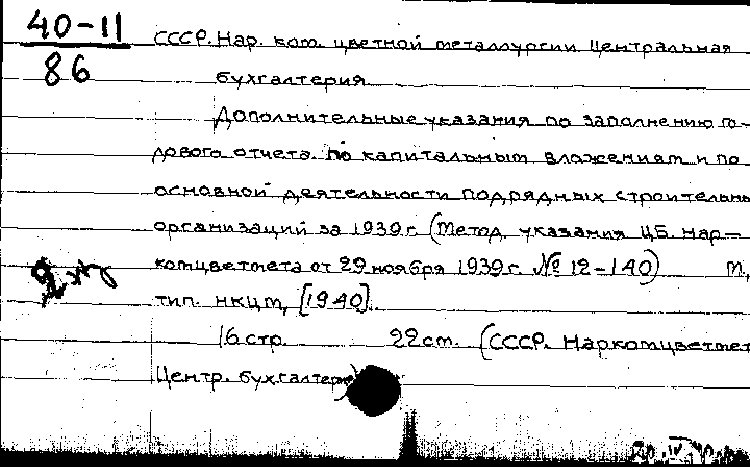 40-11
86
СССР. Нар. ком. цветной металлургии. Центральная
бухгалтерия
Дополнительные указания по заполнению го-
дового отчета по капитальным вложениям и по
основной деятельности подрядных строительн
организаций за 1939 г. (Метод. указания ЦБ. Нар-
комцветмета от 29 ноября 1939 г. № 12-140) М.,
тип. НКЦМ, [1940].
16 стр. 22 см. (СССР. Наркомцветмет
Центр. бухгалтерия)